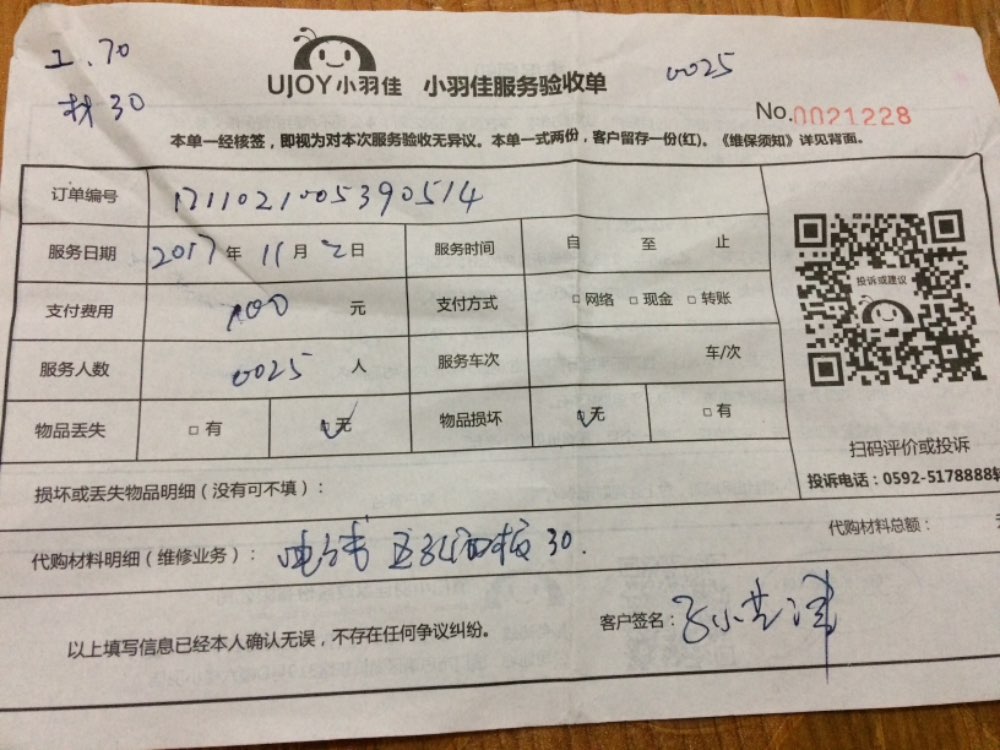 工.70
材30
UJOY小羽佳 小羽佳服务验收单
0025
No.0021228
本单一经核签，即视为对本次服务验收无异议。本单一式两份，客户留存一份(红)。《维保须知》详见背面。
订单编号 1711021005390514
服务日期 2017年11月2日 服务时间 自 至 止
支付费用 100 元 支付方式 □网络 □现金 □转账
服务人数 0025 人 服务车次 车/次
物品丢失 □有 □无 物品损坏 □无 □有
投诉或建议
扫码评价或投诉
投诉电话：0592-5178888转
损坏或丢失物品明细（没有可不填）：
代购材料明细（维修业务）： 电线 五孔面板 30. 代购材料总额：
以上填写信息已经本人确认无误，不存在任何争议纠纷。 客户签名：